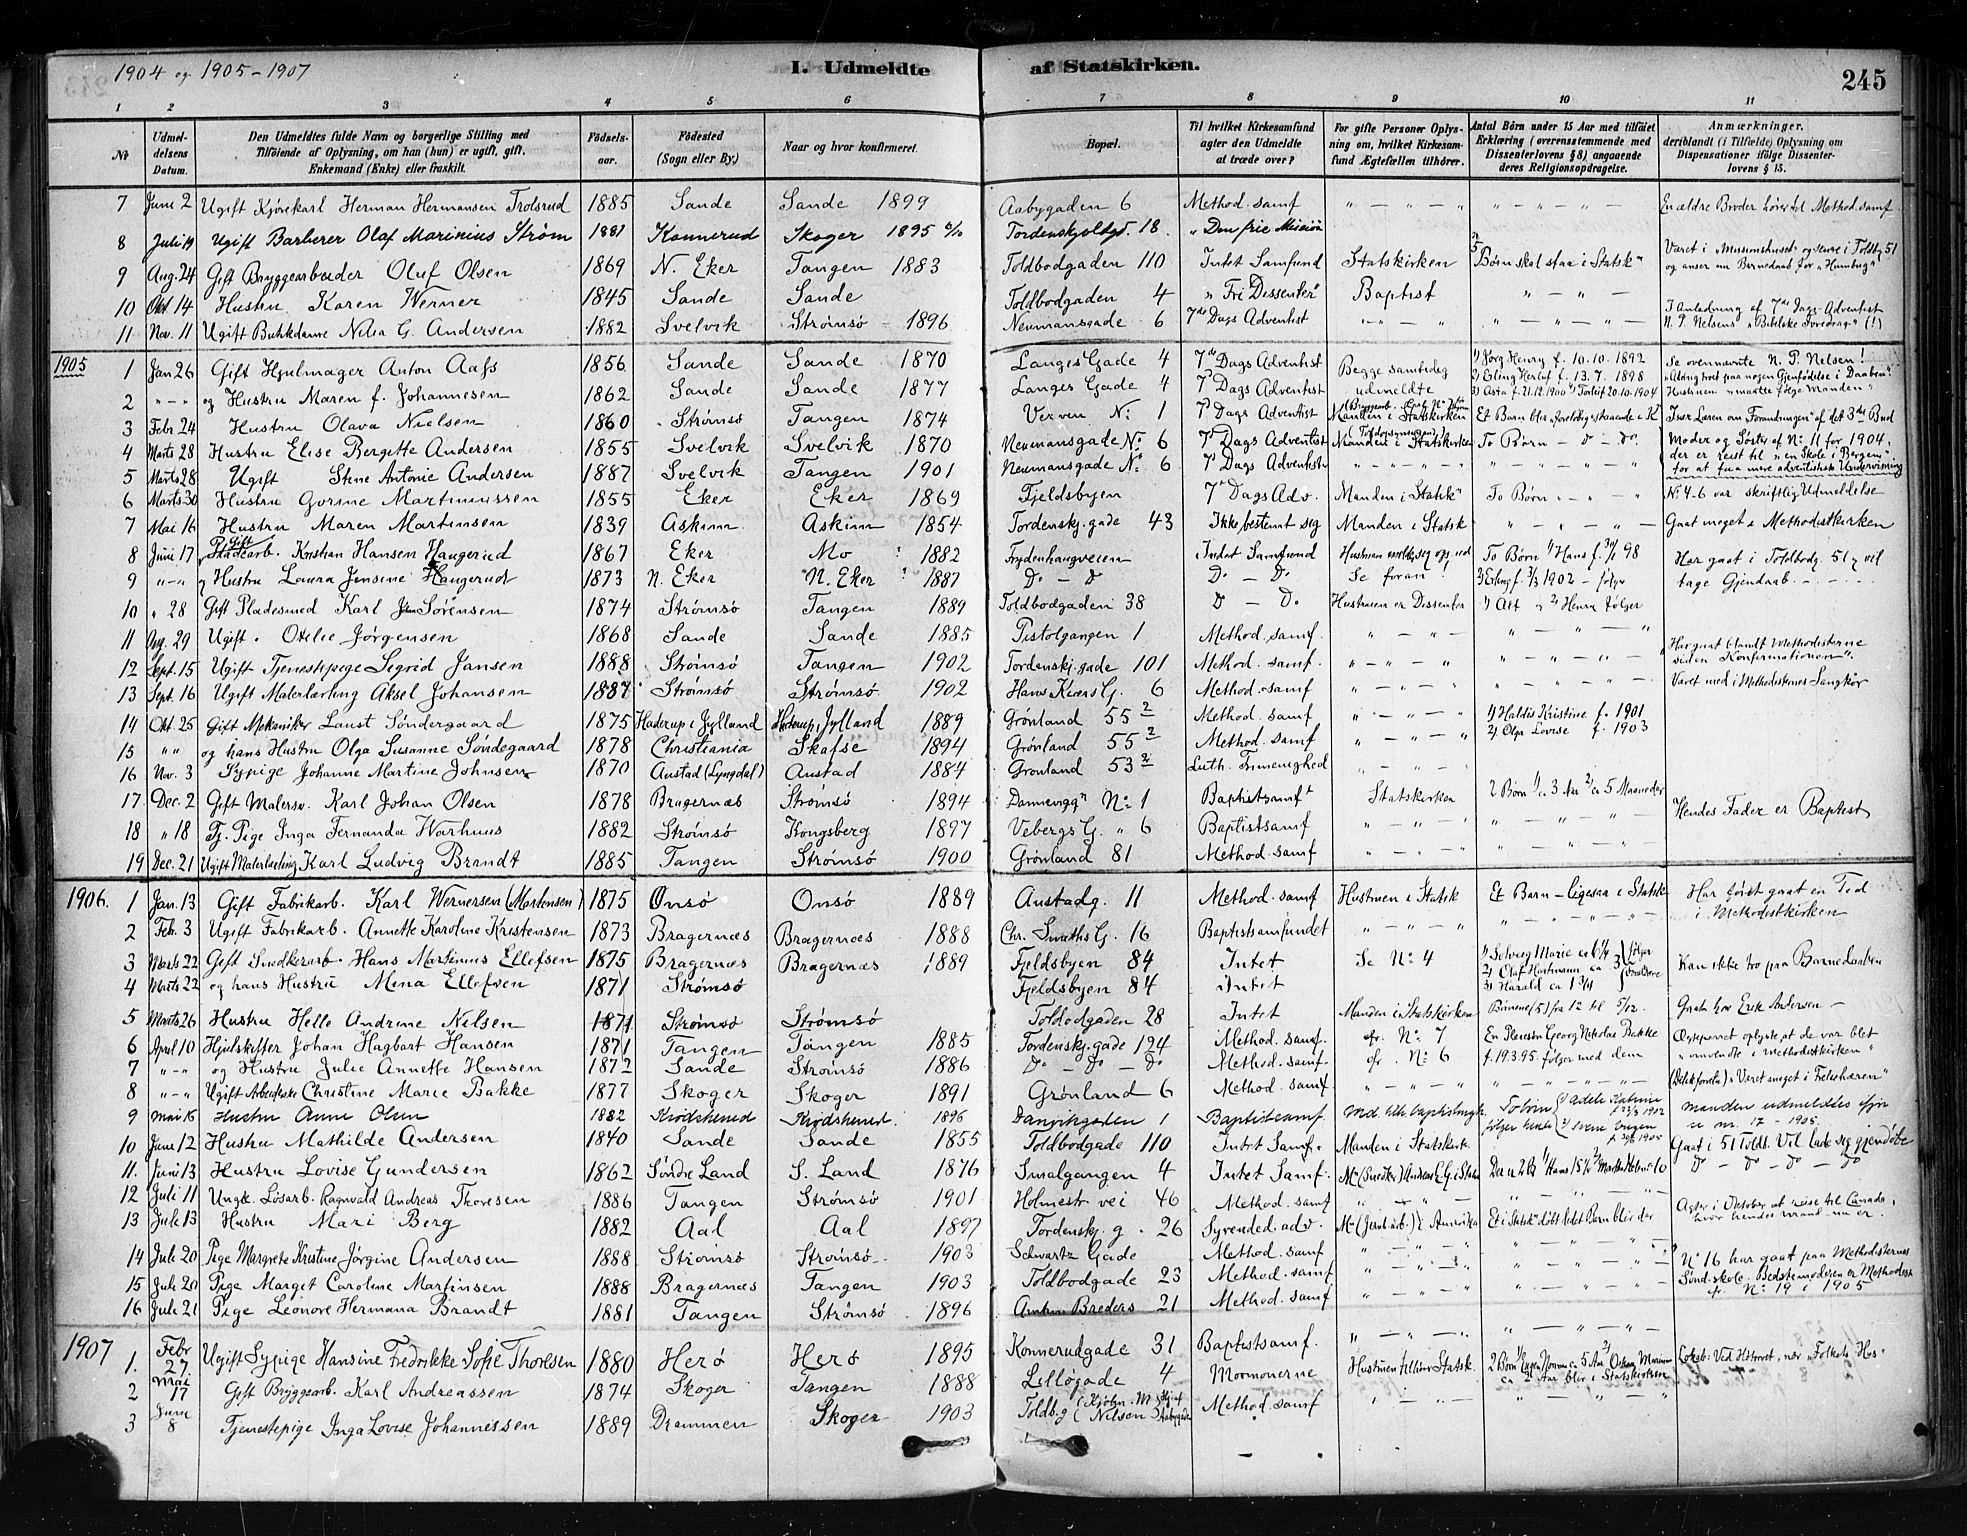 1904 og 1905-1907 I. Udmeldte af Statskirken. 245
1 2 3 4 5 6 7 8 9 10 11
No Udmeldelsens Datum. Den Udmeldtes fulde Navn og borgerlige Stilling med Tilføiende af Oplysning, om han (hun) er ugift, gift, Enkemand (Enke) eller fraskilt. Fødselsaar. Fødested (Sogn eller By.) Naar og hvor konfirmeret. Bopæl. Til hvilket Kirkesamfund agter den Udmeldte at træde over? For gifte Personer Oplysning om, hvilket Kirkesamfund Ægtefællen tilhører. Antal Børn under 15 Aar med tilføiet Erklæring (overensstemmende med Dissenterlovens § 8) angaaende deres Religionsopdragelse. Anmærkninger, deriblandt (i Tilfælde) Oplysning om Dispensationer ifølge Dissenterlovens § 15.
7 Juni 2 Ugift Kjørekarl Herman Hermansen Trolsrud 1885 Sande Sande 1899 Aabygaden 6 Method. samf. " — " — " " — " — " — En ældre Broder hører til Method. samf.
8 Juli 19 Ugift Barberer Olaf Marinius Strøm 1881 Konnerud Skoger 1895 Tordenskjoldsgd. 18 "Den frie Mission
9 Aug. 24 Gift Bryggearbeider Oluf Olsen 1869 N. Eker Tangen 1883 Toldbodgaden 110 Intet Samfund Statskirken 5 Børn skal staa i Statsk" Været i "Missionshuset" og senere i Toldbg 51 og anser nu Barnedaab for "Humbug"
10 Okt 14 Hustru Karen Werner 1845 Sande Sande Toldbodgaden 4 "Fri Dissenter" Baptist " — " —
11 Nov. 11 Ugift Butikdame Nilsa G. Andersen 1882 Svelvik Strømsø 1896 Neumansgade 6 7de Dags Adventist " — " — " " — " — " — I Anledning af 7de Dags-Adventist N. P. Nelsens "Bibelske Foredrag" (!)
1905 1 Jan 26 Gift Hjulmager Anton Aass 1856 Sande Sande 1870 Langes Gade 4 7de Dags Adventist Begge samtidig udmeldte 1) Jørg Henry f. 10.10.1892 Se ovennævnte N. P. Nelsen!
2 " — " og Hustru Maren f. Johannesen 1862 Sande Sande 1877 Langes Gade 4 7 Dags Adventist 2) Erling Herlof f. 13.7.1898 3) Asta f. 21.12.1900 4) Torleif 20.10.1904 "Aldrig troet paa nogen Gjenfødelse i Daaben". Hustruen "maatte følge Manden"
3 Febr 24 Hustru Olava Nielsen 1860 Strømsø Tangen 1874 Verven No 1 7 Dags Adventist Manden i Statskirken
4 Marts 28 Hustru Elise Bergitte Andersen 1855 Svelvik Svelvik 1870 Neumansgade No 6 7 Dags Adventist Manden i Statskirken To Børn — d — do Moder og Søster af No 11 for 1904,
5 Marts 28 Ugift Stine Antonie Andersen 1887 Svelvik Tangen 1901 Neumansgade No 6 7 Dags Adventist " — " — " — " " — " — " — " der er reist til "en Skole i Bergen" for at faa mere adventistisk Undervisning
6 Marts 30 Hustru Gorine Martinussen 1855 Eker Eker 1869 Fjeldsbyen 7 Dags Adv. Manden i Statsk" To Børn " — " — " No 4-6 var skriftlig Udmeldelse
7 Mai 16 Hustru Maren Martinsen 1839 Askim Askim 1854 Tordenskj. gade 43 Ikke bestemt sig Manden i Statsk " — " — " — " Gaat meget i Methodistkirken
8 Juni 17 Gift Kristian Hansen Haugerud 1867 Eker Mo 1882 Frydenhaugveien Intet Samfund To Børn 1) Hans f. 98 Har gaat i Toldbodg. 51 og vil
9 " — " og Hustru Laura Jensine Haugerud 1873 N. Eker N. Eker 1887 Do — d Do — Do Se foran! 2) Erling f. 1902 — følger tage Gjendaab — — —
10 " 28 Gift Pladesmed Karl Sørensen 1874 Strømsø Tangen 1889 Toldbodgaden 38 D — Do Hustruen er Dissenter 1) Alf " 2) Henry følger
11 Aug. 29 Ugift. Otelie Jørgensen 1868 Sande Sande 1885 Pistolgangen 1 Method. samf. " — " — " " — " — "
12 Sept. 15 Ugift Tjenestepige Sigrid Jansen 1888 Strømsø Tangen 1902 Tordenskj. gade 101 Method. samf. " — " — " " — " — " Har gaat blandt Methodisterne siden Konfirmationen".
13 Sept. 16 Ugift Malerlærling Aksel Johansen 1887 Strømsø Strømsø 1902 Hans Kiers G. 6 Method. samf " — " — " " — " — " Været med i Methodisternes Sangkor
14 Okt 25 Gift Mekaniker Laust Søndergaard 1875 Haderup i Jylland Haderup i Jylland 1889 Grønland 55 2 Method. samf " — " — " 1) Haldis Kristine f. 1901
15 " " og hans Hustru Olga Susanne Søndegaard 1878 Christiania Skafse 1894 Grønland 55 2 Method. samf " — " — " 2) Olga Lovise f. 1903
16 Nov. 3 Sypige Johanne Martine Johnsen 1870 Austad (Lyngdal) Austad 1884 Grønland 53 2 Luth. Frimenighed " — " — "
17 Dec. 2 Gift Malersv. Karl Johan Olsen 1878 Bragernæs Strømsø 1894 No 1 Baptistsamft Statskirken 2 Børn 1) ca 3 Aar 2) ca 5 Maaneder
18 " 18 Tj. Pige Inga Fernanda Warhuus 1882 Strømsø Kongsberg 1897 Vebergs G. " 6 Baptistsamf " — " — " " — " — " — " Hendes Fader er Baptist
19 Dec. 21 Ugift Malerlærling Karl Ludvig Brandt 1885 Tangen Strømsø 1900 Grønland 81 Method. samf " — " — " " — " — " — "
1906. 1 Jan. 13 Gift Fabrikarb. Karl Wernersen (Martensen) 1875 Onsø Onsø 1889 Austadg. 11 Method. samf Hustruen i Statsk Et Barn — Ligesaa i Statsk Har først gaat en Tid i Methodistkirken
2 Feb. 3 Ugift Fabrikarb. Annette Karoline Kristensen 1873 Bragernæs Bragernæs 1888 Chr. Smiths G. 16 Baptistsamfundet " — " — " " — " — " — "
3 Marts 22 Gift Snedkerarb. Hans Martinius Ellefsen 1875 Bragernæs Bragernæs 1889 Fjeldsbyen 84 Intet Se No 4 1) Solveig Marie 2) Olaf Hartmann ca 3 følger Forældrene Kan ikke tro paa Barnedaaben
4 Marts 22 og hans Hustru Mina Ellefsen 1871 Strømsø Fjeldsbyen 84 Intet 3) Harald ca 1 3/4
5 Marts 26 Hustru Helle Andrine Nilsen 1871 Strømsø Strømsø Toldodgaden 28 Intet Manden i Statskirken Børnene (5) fra 12 til 5/12. Gaat hos Erik Andersen —
6 April 10 Hjulskifter Johan Hagbart Hansen 1871 Tangen Tangen 1885 Tordenskj. gade 124 Method. samf. cfr. No 7 En Pleiesøn Georg Nikolai Bakke Ægteparret oplyste at de var blet
7 " — " og Hustru Julie Annette Hansen 1872 Sande Strømsø 1886 Do — Do — Do Method. samf. cfr. No 6 f. 19.3.95. følger med dem "omvendte i Methodistkirken"
8 " — " Ugift Arbeiderske Christine Marie Bakke 1877 Skoger Skoger 1891 Grønland 6 Method. samf. " — " — " " — " — " — " "Været meget i Frelsehæren"
9 Mai 15 Hustru Anne Olsen 1882 Krødsherred Krødsherred 1896 Danvikgaden 1 Baptistsamf. To børn 1) Adele Katrine 1902 følger 2) Svein f. 1905 manden udmeldtes no. 17 - 1905.
10 Juni 12 Hustru Mathilde Andersen 1840 Sande Sande 1855 Toldbodgade 110 Intet Samf. Manden i Statskirk " — " — " — " Gaat i 51 Toldb. Vil lade sig gjendøbe
11. Juni 13 Hustru Lovise Gundersen 1862 Søndre Land S. Land 1876 Smalgangen 4 Intet Samf. Do — d — d — Do
12 Juli 11 Ungk. Løsarb. Ragnvald Andreas Thoresen 1886 Tangen Strømsø 1901 Holmestr. vei 46 Method. samf " — " — " " — " — " — "
13 Juli 13 Hustru Mari Berg 1882 Aal Aal 1897 Tordenskj. g. 26 Syvended. adv. M. (Jernb. arb.) i Amerika Et i Statsk" døbt lidet Barn blir der Agter i Oktober at reise til Canada, hvor hendes mand nu er.
14 Juli 20 Pige Margrete Kristine Jørgine Andersen 1888 Strømsø Strømsø 1903 Schwartz Gade Method. samf " — " — " " — " — " — " No 16 har gaat paa Methodisternes
15 Juli 20 Pige Marget Caroline Martinsen 1888 Bragernæs Tangen 1903 Toldbodgade 23 Method. samf " — " — " " — " — " — " Sønd. skole. Bedstemoderen er Methodist
16 Juli 21 Pige Leonore Hermana Brandt 1881 Tangen Strømsø 1896 Anton Breders 21 Method. samf " — " — " " — " — " — " cfr. No 19 i 1905
1907 1. Febr 27 Ugift Sypige Hansine Fredrikke Sofie Thoresen 1880 Herø Herø 1895 Konnerudgade 31 Baptistsamf. " — " — " " — " — "
2 Mai 17 Gift Bryggearb. Karl Andreassen 1874 Skoger Tangen 1888 Lilløgade 4 Mormonerne Hustruen tilhører Statsk. ca 2 Aar blir i Statskirken
3 Juni 8 Tjenestepige Inga Lovise Johannessen 1889 Drammen Skoger 1903 Toldb. g Method. samf " — " — " " — " — "